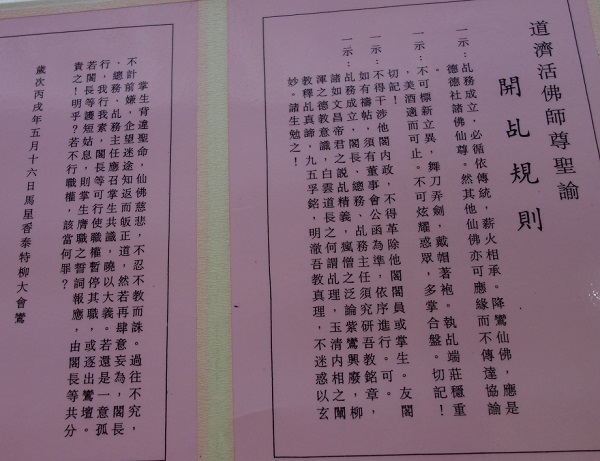 道濟活佛師尊聖諭
開乩規則
一示：乩務成立，必循依傳統，薪火相承。降鸞仙佛，應是
德德社諸佛仙尊。然其他仙佛亦可應緣而不傳達協諭
。
一示：不可標新立異，舞刀弄劍，戴帽著袍。執乩端莊穩重
，美酒適而可止。不可炫耀惑眾，多掌合盤。切記！
切記！
一示：不得干涉他閣內政，不得革除他閣閣員或掌生。友閣
如有禱帖，須有董事會公函為準，依序進行。可。
一示：乩務成立，閣長、總務、乩務主任須究研吾教銘章，
諸如文昌帝君之説乩精義，瘋僧之泛論紫鸞興廢，柳
渾之德教意識，白雲道長之何謂乩理，玉清内相之闡
教釋乩真諦，九五孚銘，明澈吾教真理，不迷惑以玄
妙。諸生勉之！
掌生背違聖命，仙佛慈悲，不忍不教而誅。過往不究，
不計前嫌，企望迷途知返而皈正道，然若再肆意妄為，閣長
、總務、乩務主任應召掌生共議，曉以大義。若還是一意孤
行，我行我素，閣長等可行使職權暫停其職，或逐出鸞壇。
若閣長等護短姑息，則掌生膺職之誓詞報應，由閣長等共分
責之！明乎？若不行職權，該當何罪？
歲次丙戌年五月十六日馬星香泰特柳大會鸞